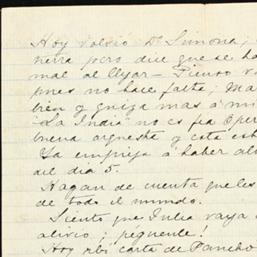 Hoy volvió Dr Simona;
neira pero dice que se ha
mal al llegar - Tienso
pues no hace falta; Ma
bien y quiza mas a mi
"La India" no es pa Oper
buena orquesta y esta est
Ya empieza á haber al
del dia 5.
Hagan de cuenta que les
de todo el mundo.
Siento que Julia vaya
alivio; péguenle!
Hoy rbí carta de Pancho